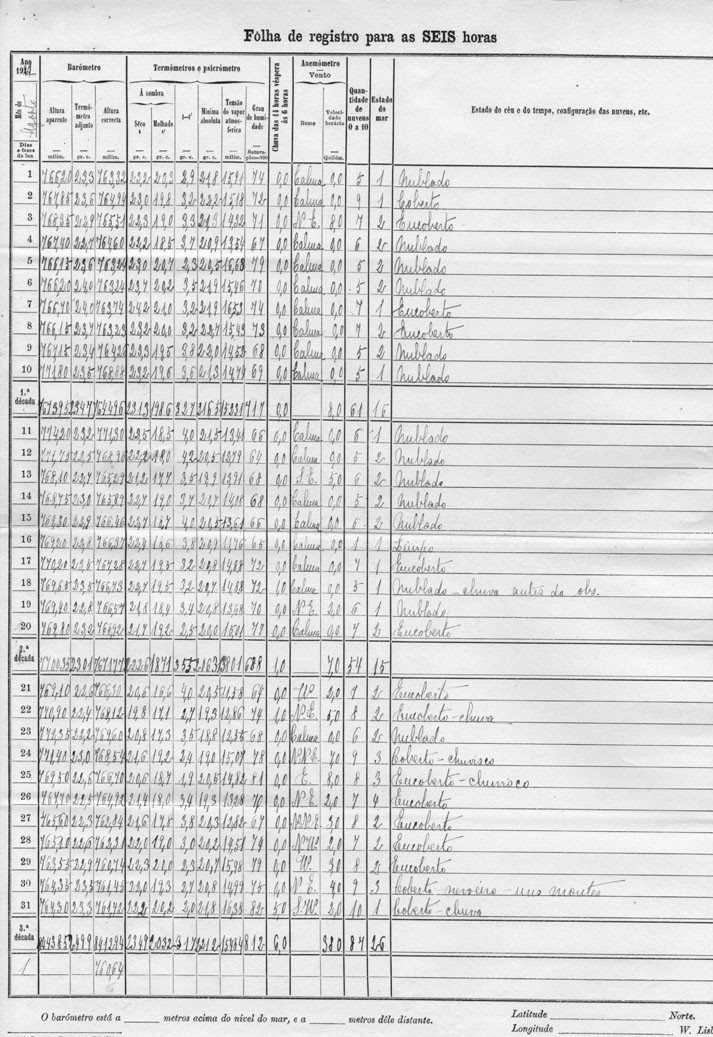 Fôlha de registro para as SEIS horas
Ano 19
Mês de Agosto
Dias e fases da lua
Barómetro
Altura aparente
Termómetro adjunto
Altura correcta
milim. gr. c. milim.
Termómetros e psicrómetro
À sombra
Sêco t
Molhado t'
t—t'
Mínima absoluta
Tensão do vapor atmosférico
Grau de humidade
gr. c. gr. c. gr. c. gr. c. milim. Saturação=100
Chuva das 14 horas véspera às 6 horas
Anemómetro
Vento
Rumo
Velocidade horária
Quilóm.
Quantidade de nuvens 0 a 10
Estado do mar
Estado do céu e do tempo, configuração das nuvens, etc.
1 766,20 23,3 763,32 23,2 20,3 2,9 21,8 15,91 74 0,0 Calma 0,0 5 1 Nublado
2 23,6 23,0 19,8 3,2 15,18 72 0,0 Calma 0,0 9 1 Coberto
3 22,9 22,3 19,0 3,3 21,3 14,32 71 0,0 N.E. 8,0 7 2 Encoberto
4 767,40 22,7 764,60 22,2 18,5 3,7 20,9 13,34 67 0,0 Calma 0,0 6 2 Nublado
5 766,15 23,6 763,24 23,0 20,7 2,3 20,5 16,68 79 0,0 Calma 0,0 5 2 Nublado
6 766,20 24,0 763,24 23,7 20,2 3,5 21,9 15,46 70 0,0 Calma 0,0 5 2 Nublado
7 766,70 24,0 763,74 24,2 21,0 3,2 21,9 16,53 74 0,0 Calma 0,0 7 1 Encoberto
8 766,15 23,7 763,23 23,2 20,0 3,2 22,7 15,43 73 0,0 Calma 0,0 7 2 Encoberto
9 767,15 23,4 764,26 23,3 19,5 3,8 22,0 14,52 68 0,0 Calma 0,0 5 2 Nublado
10 771,80 23,5 768,88 23,2 19,6 3,6 21,3 14,74 69 0,0 Calma 0,0 5 1 Nublado
1.ª década 234,7 231,3 198,6 32,7 216,5 717 0,0 8,0 61 16
11 774,20 23,2 771,30 22,5 18,5 4,0 21,5 13,41 66 0,0 Calma 0,0 6 1 Nublado
12 771,75 22,5 768,96 22,2 18,0 4,2 20,5 12,79 64 0,0 Calma 0,0 5 2 Nublado
13 768,10 22,7 765,29 21,2 17,7 3,5 19,9 12,91 68 0,0 S.E. 5,0 6 2 Nublado
14 768,75 23,0 765,89 22,7 19,0 3,7 21,7 14,08 68 0,0 Calma 0,0 5 2 Nublado
15 22,9 22,7 18,7 4,0 20,5 13,61 66 0,0 Calma 0,0 6 2 Nublado
16 769,20 22,8 3,8 20,9 65 0,0 Calma 0,0 1 1 Limpo
17 770,20 23,5 22,7 19,5 3,2 20,8 14,88 72 0,0 Calma 0,0 7 1 Encoberto
18 769,65 23,5 766,73 22,7 19,5 3,2 20,7 14,88 72 1,0 Calma 0,0 5 1 Nublado - chuva antes da obs.
19 769,40 22,8 766,57 21,8 18,4 3,4 20,8 13,68 70 0,0 N.E. 2,0 6 1 Nublado
20 769,80 23,2 766,92 21,7 19,2 2,5 20,0 15,01 77 0,0 Calma 0,0 7 2 Encoberto
2.ª década 230,1 222,6 187,1 35,5 688 1,0 7,0 54 15
21 769,10 22,6 766,30 20,6 16,6 4,0 20,5 11,58 64 0,0 W. 2,0 7 2 Encoberto
22 770,90 22,4 768,12 19,8 17,1 2,7 19,3 12,86 74 1,0 N.E. 5,0 8 2 Encoberto - chuva
23 22,2 20,8 17,3 3,5 18,8 12,55 68 0,0 Calma 0,0 6 2 Nublado
24 771,40 23,0 768,54 21,6 19,2 2,4 19,0 15,07 78 0,0 N.N.E. 7,0 9 3 Coberto - chuvisco
25 769,50 22,6 766,70 20,6 18,7 1,9 20,5 14,82 81 0,0 E. 8,0 8 3 Encoberto - chuvisco
26 767,70 22,5 764,92 21,4 18,0 3,4 19,3 13,28 70 0,0 N.E. 2,0 7 4 Encoberto
27 22,3 21,6 17,8 3,8 20,3 12,82 67 0,0 N.N.E. 3,0 8 2 Encoberto
28 22,6 22,0 19,0 3,0 20,2 14,51 74 0,0 N.W. 2,0 7 2 Encoberto
29 763,55 22,9 760,74 22,3 20,0 2,3 20,7 15,98 79 0,0 W. 3,0 8 2 Encoberto
30 764,35 23,5 761,45 22,0 19,3 2,7 20,8 14,99 75 0,0 N.E. 4,0 9 3 Coberto nevoeiro nos montes
31 764,30 23,3 761,42 22,2 20,2 2,0 21,8 16,38 82 5,0 S.W. 2,0 10 1 Coberto - chuva
3.ª década 249,9 234,9 203,2 31,7 812 6,0 38,0 87 26
1 760,64
O barómetro está a ______ metros acima do nivel do mar, e a ______ metros dêle distante.
Latitude ______ Norte.
Longitude ______ W. Lisb